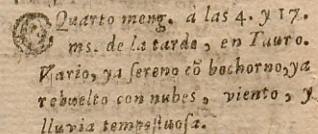 Quarto meng. á las 4. y 17.
ms. de la tarde, en Tauro.
Vario, ya sereno cõ bochorno, ya
rebuelto con nubes, viento, y
lluvia tempestuosa.